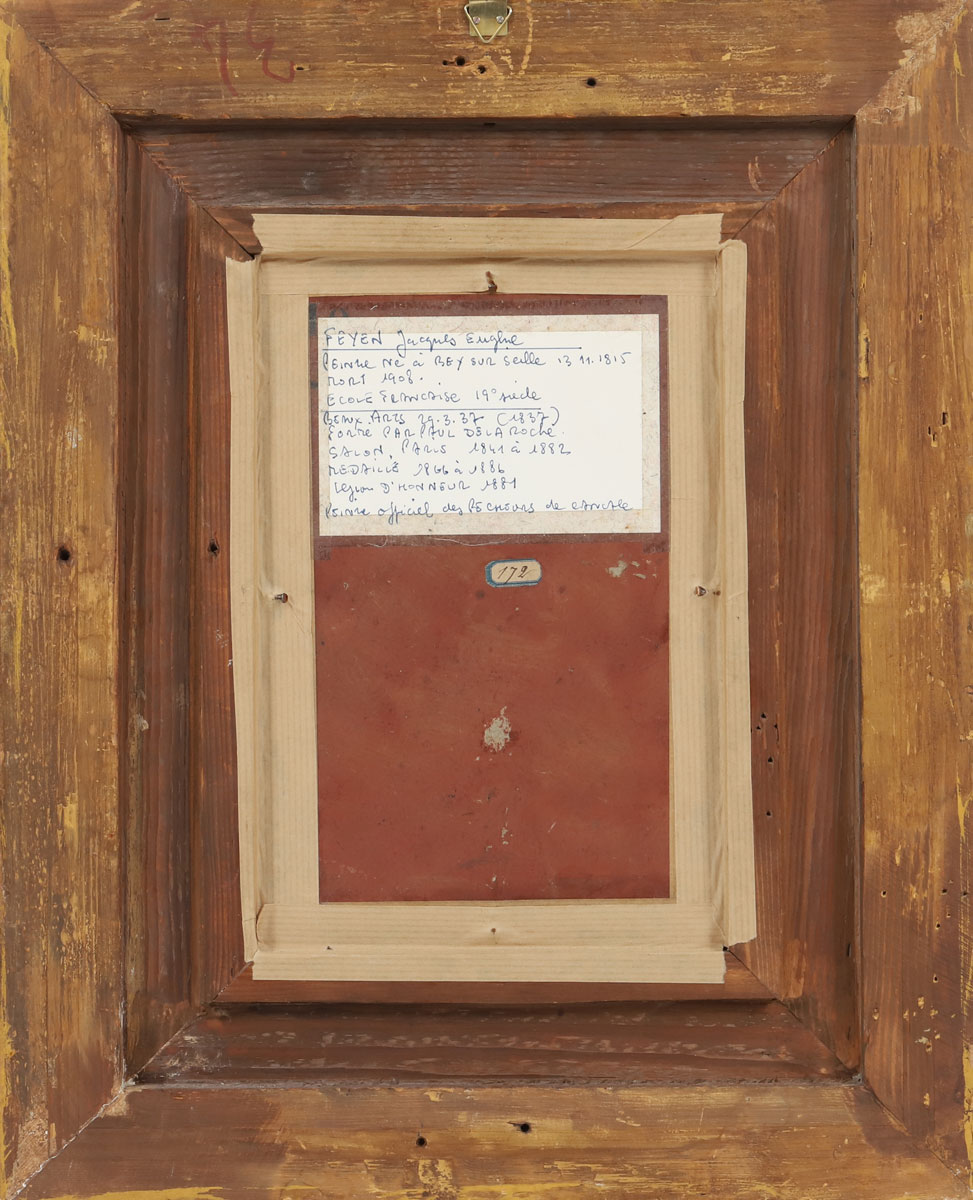 FEYEN Jacques Eugène
Peintre né à BEY SUR Seille 13.11.1815
MORT 1908.
ECOLE FRANCAISE 19° siècle
BEAUX. ARTS 29.3.37 (1837)
FORME PAR PAUL DELAROCHE.
SALON, PARIS 1841 à 1882
MEDAILLÉ 1866 à 1886
Legion D'HONNEUR 1881
Peintre officiel des PECHEURS de CANCALE
172